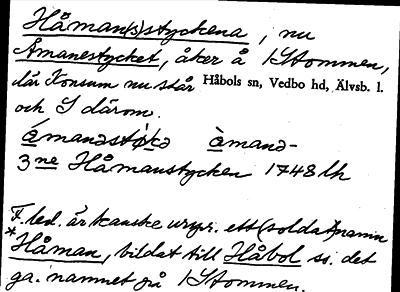 Håman(s)styckena, nu
Åmanestycket, åker å 1 Stommen,
där Konsum nu står Håbols sn, Vedbo hd, Älvsb. l.
och S därom.
ámanəstøkə àmanə-
3 ne Håmanstycken 1748 lh
F.led. är kanske urspr. ett (soldat)namn
*Håman, bildat till Håbol ss. det
ga. namnet på 1 Stommen.